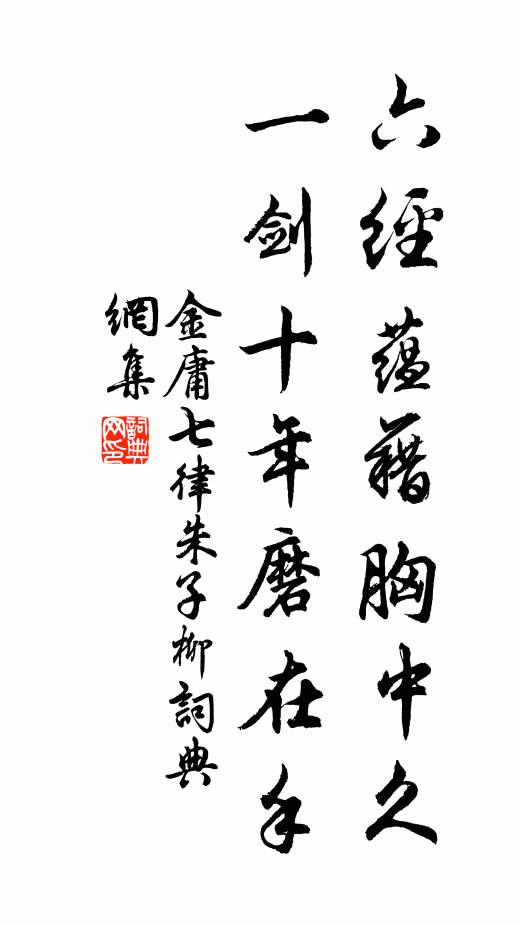 六經蘊藉胸中久
一劍十年磨在手
金庸七律朱子柳詞典
網集
詞典網印